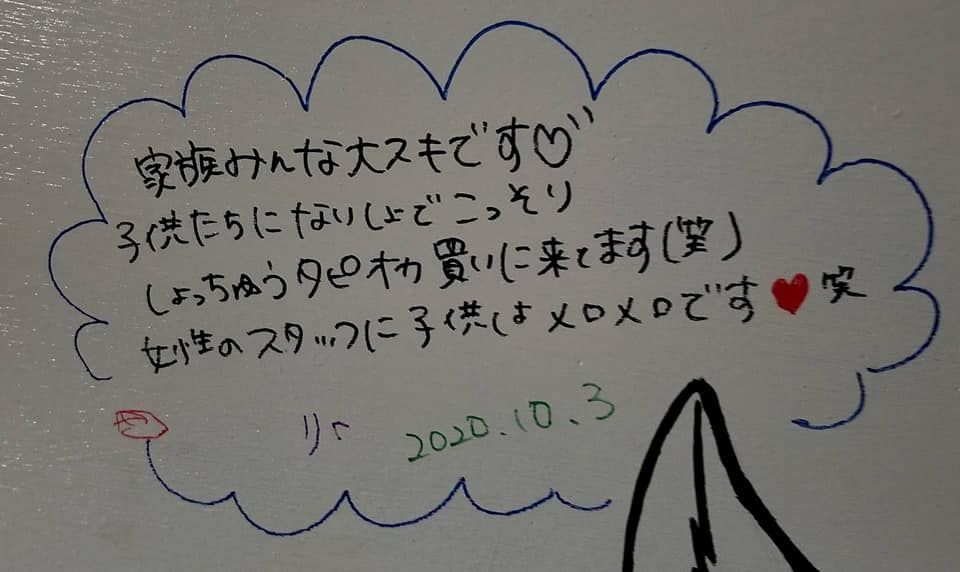 家族みんな大スキです♡"
子供たちにないしょでこっそり
しょっちゅうタピオカ買いに来てます(笑)
女性のスタッフに子供はメロメロです♥笑
2020.10.3